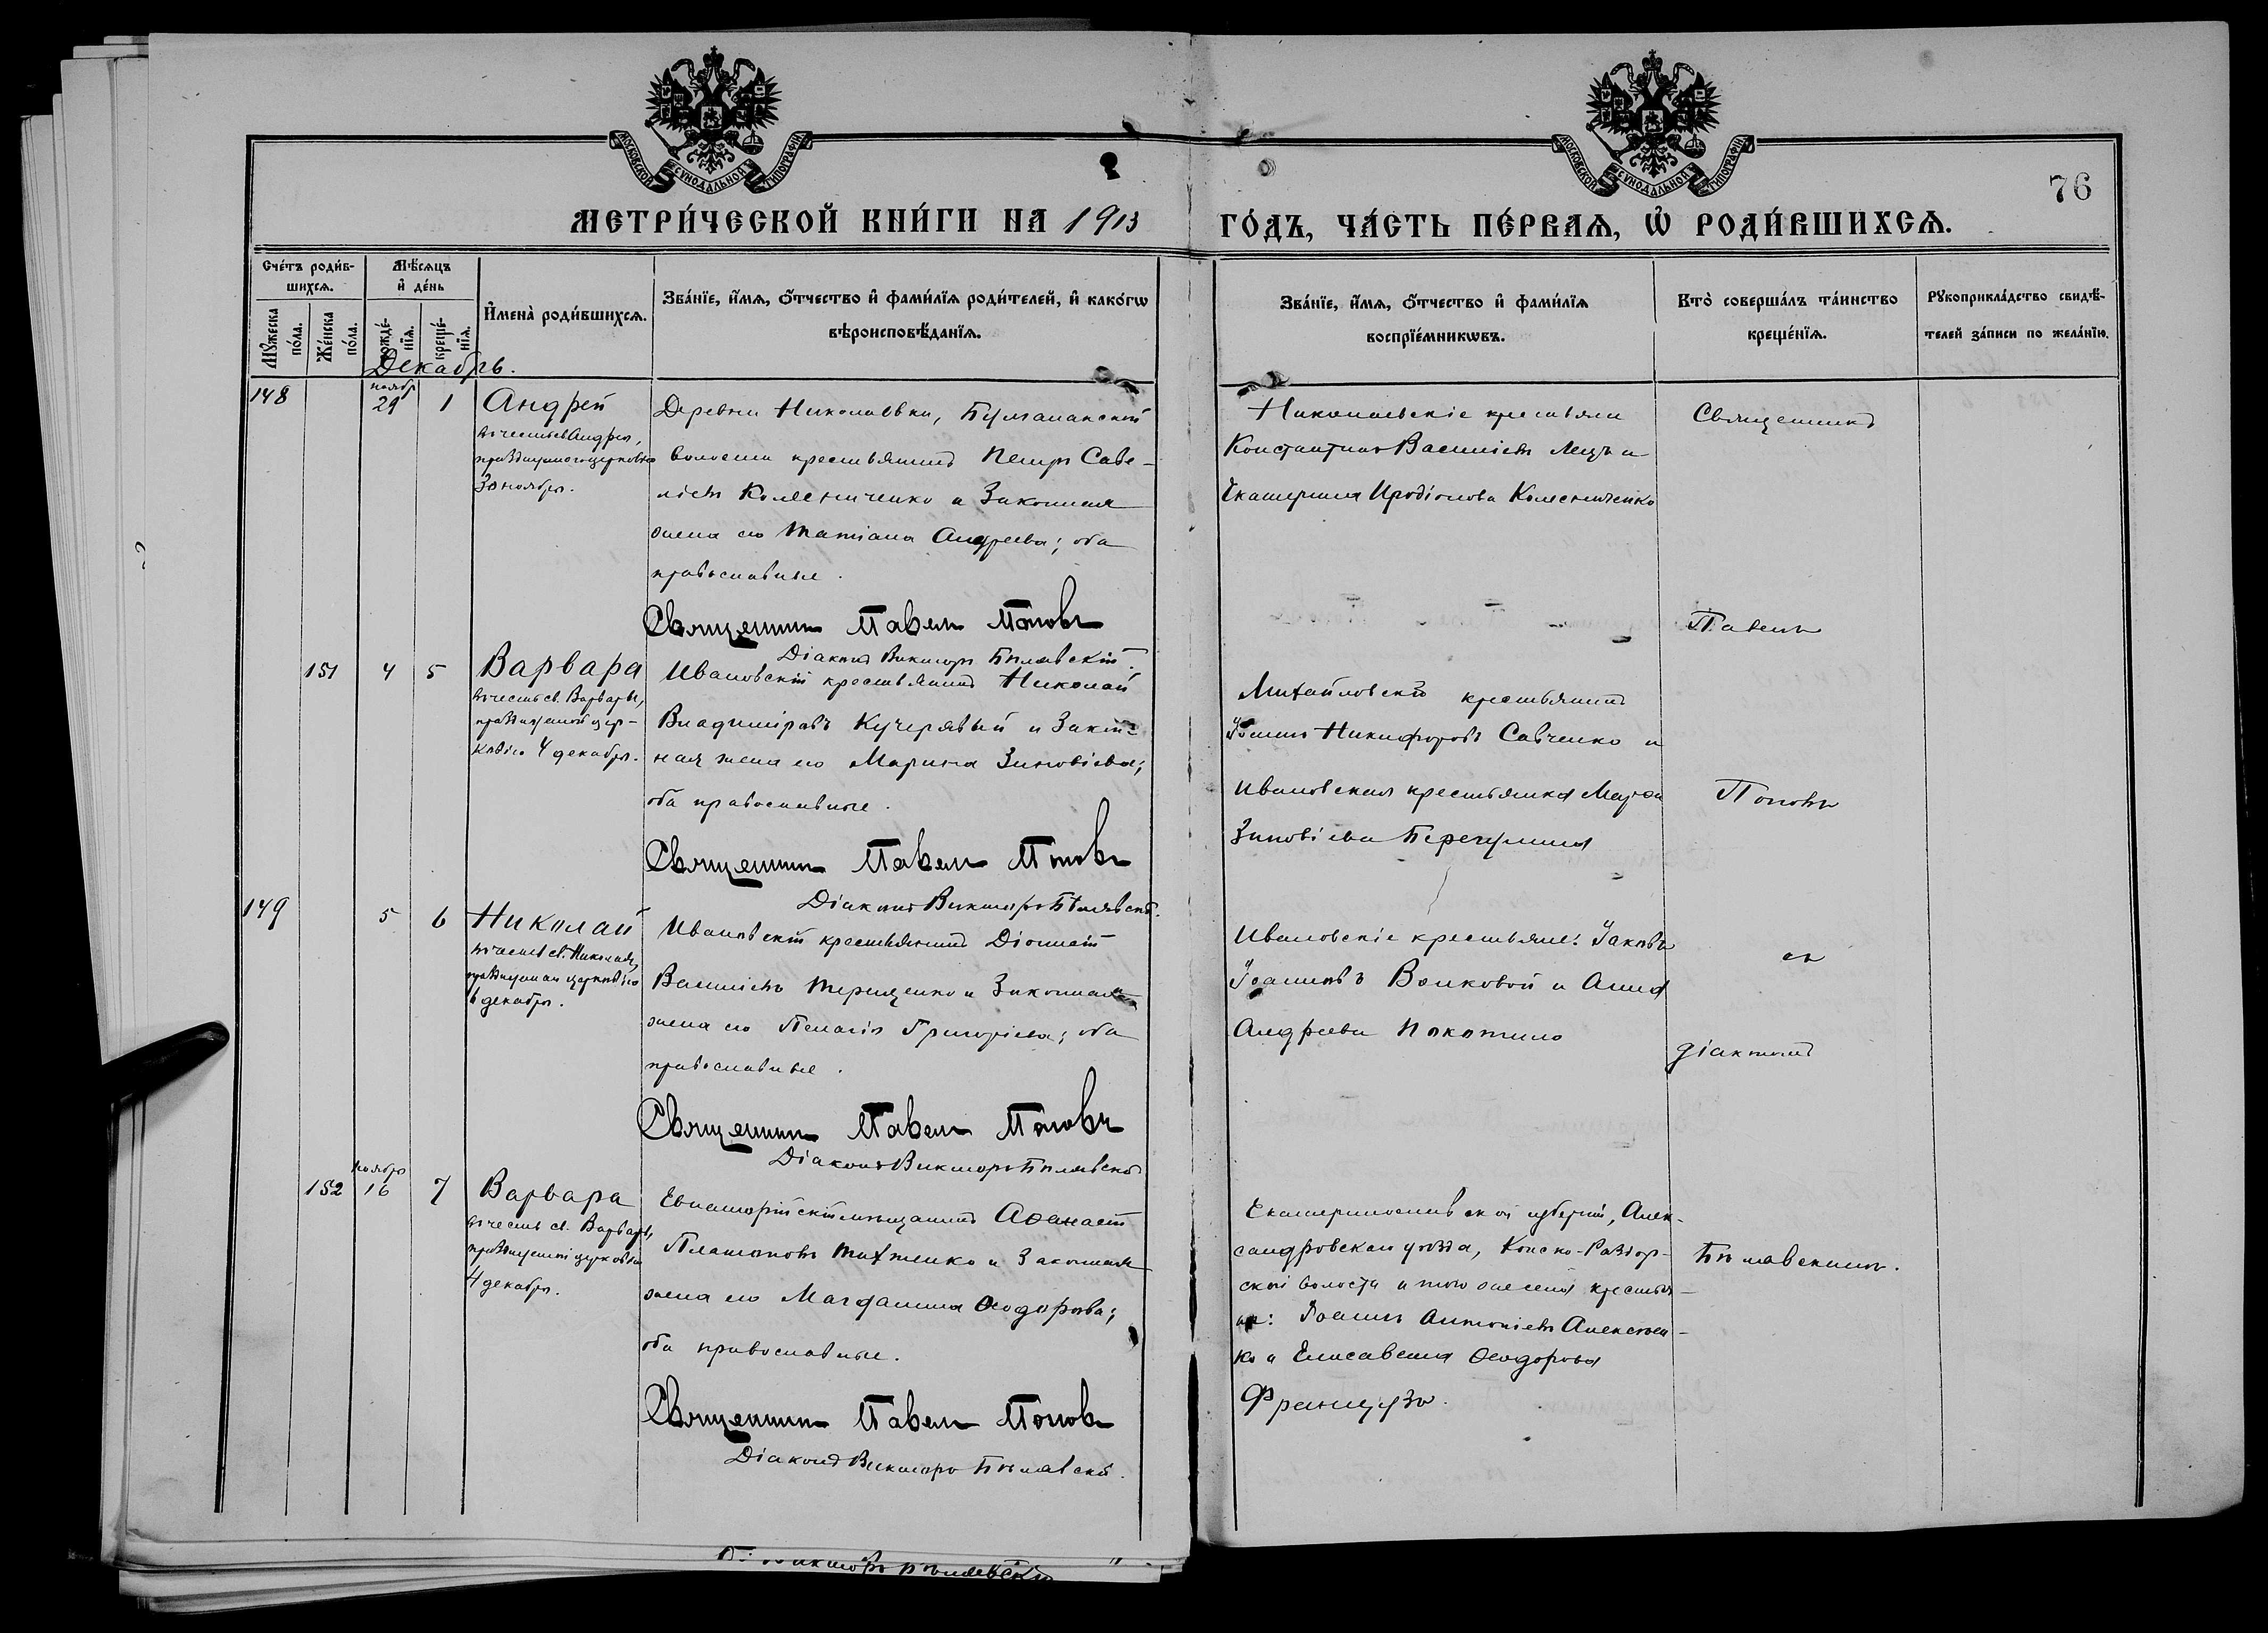 МОСКОВСКОЙ СѴНОДАЛЬНОЙ ТИПОГРАФІИ
МОСКОВСКОЙ СѴНОДАЛЬНОЙ ТИПОГРАФІИ
76
МЕТРИ́ЧЕСКОЙ КНИ́ГИ НА 1913 ГО́ДЪ, ЧА́СТЬ ПЕ́РВАѦ, Ѡ҆ РОДИ́ВШИХСѦ.
Сче́тъ роди́в-
шихсѧ.
Мѣ́сѧцъ
и҆ де́нь
Мꙋ́жеска по́ла.
Же́нска по́ла.
рожде́-
нїѧ.
креще́-
нїѧ.
И҆мена̀ роди́вшихсѧ.
Зва́нїе, и҆́мѧ, ѻ҆́тчество и҆ фами́лїѧ роди́телей, и҆ како́гѡ
вѣроисповѣ́данїѧ.
Зва́нїе, и҆́мѧ, ѻ҆́тчество и҆ фами́лїѧ
воспрїе́мникѡвъ.
Кто̀ соверша́лъ та́инство
креще́нїѧ.
Рꙋкоприкла́дство свидѣ́-
телей за́писи по жела́нїю.
Декабрь.
148
ноябр
29
1
Андрей
въ честь св Андрея,
празднуемаго церковью
30 ноября.
Деревни Николаевки,
волости крестьянинъ Петръ Саве-
ліевъ Колесниченко и законная
жена его Татіана Андреева; оба
православные.
Священникъ Павелъ Поповъ
Діаконъ Викторъ Бѣлявскій.
Николаевскіе крестьяне
Константинъ Василіевъ и
Екатерина Иродіонова Колесниченко
Священникъ
Павелъ
151
4
5
Варвара
въ честь св. Варвары,
празднуемой цер-
ковію 4 декабря.
Ивановскій крестьянинъ Николай
Владиміровъ Кучерявый и закон-
ная жена его Марина Зиновіева;
оба православные.
Священникъ Павелъ Поповъ
Діаконъ Викторъ Бѣлявскій.
Михайловскій крестьянинъ
Іоаннъ Никифоровъ Савченко и
Ивановская крестьянка
Зиновіева
Поповъ
149
5
6
Николай
въ честь св. Николая,
празднуемаго церковію
6 декабря.
Ивановскій крестьянинъ Діонисій
Василіевъ Терещенко и законная
жена его Пелагія Григоріева; оба
православные.
Священникъ Павелъ Поповъ
Діаконъ Викторъ Бѣлявскій
Ивановскіе крестьяне: Іаковъ
Іоанновъ Волковой и Анна
Андреева Покотило
съ
діакономъ
152
ноября
16
7
Варвара
въ честь св. Варвары,
празднуемой церковію
4 декабря.
Евпаторійскій мѣщанинъ Аѳанасій
Платоновъ и законная
жена его Магдалина Ѳеодорова;
оба православные.
Священникъ Павелъ Поповъ
Діаконъ Викторъ Бѣлявскій.
Екатеринославской губерніи, Алек-
сандровскаго уѣзда, Конско-Раздор-
ской волости и того же села крестья-
не: Іоаннъ Антоніевъ Алексѣен-
ко и Елисавета Ѳеодорова
Француз.
Бѣлявскимъ.
Викторъ Бѣлявскій